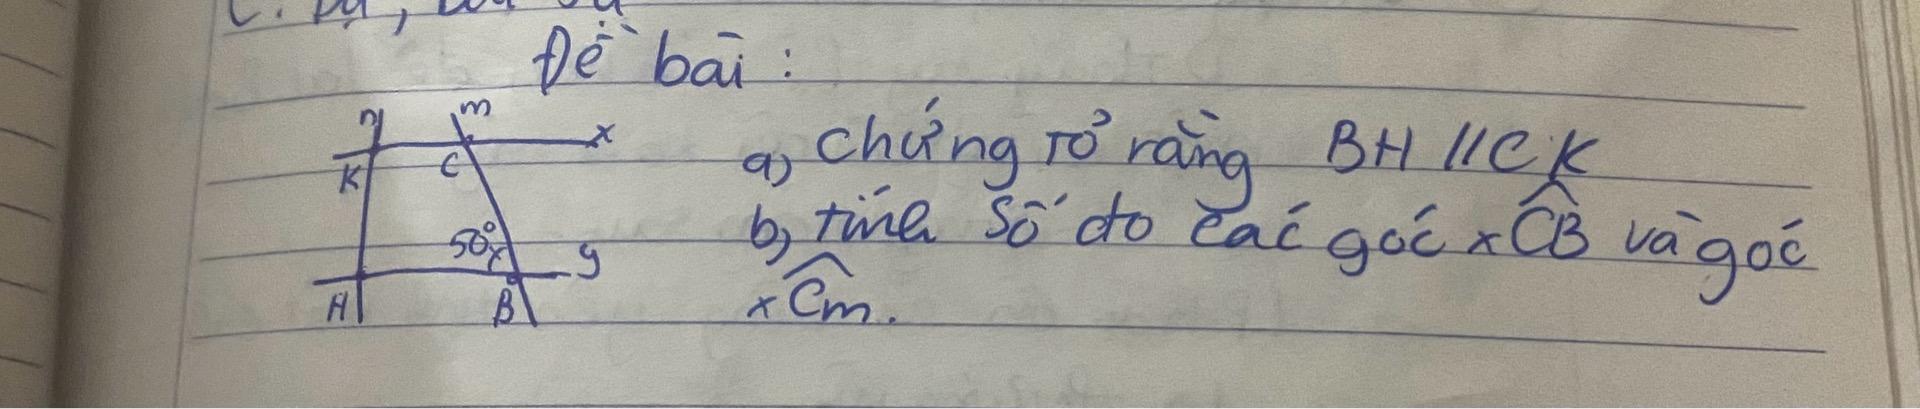 Đề bài :
n m x
K C
50° y
H B
a, Chứng tỏ rằng BH // CK
b, tính số đo các góc xCB và góc
xCm.